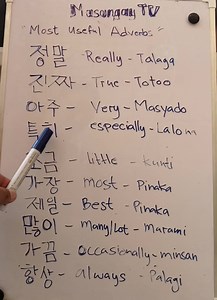 Masangay TV
"Most Useful Adverbs"
정말 - Really - Talaga
진짜 - True - Totoo
아주 - Very - Masyado
특히 - especially - Lalo
조금 - little - kunti
가장 - most - Pinaka
제일 - Best - Pinaka
많이 - many/Lot - Marami
가끔 - occasionally - minsan
항상 - always - Palagi